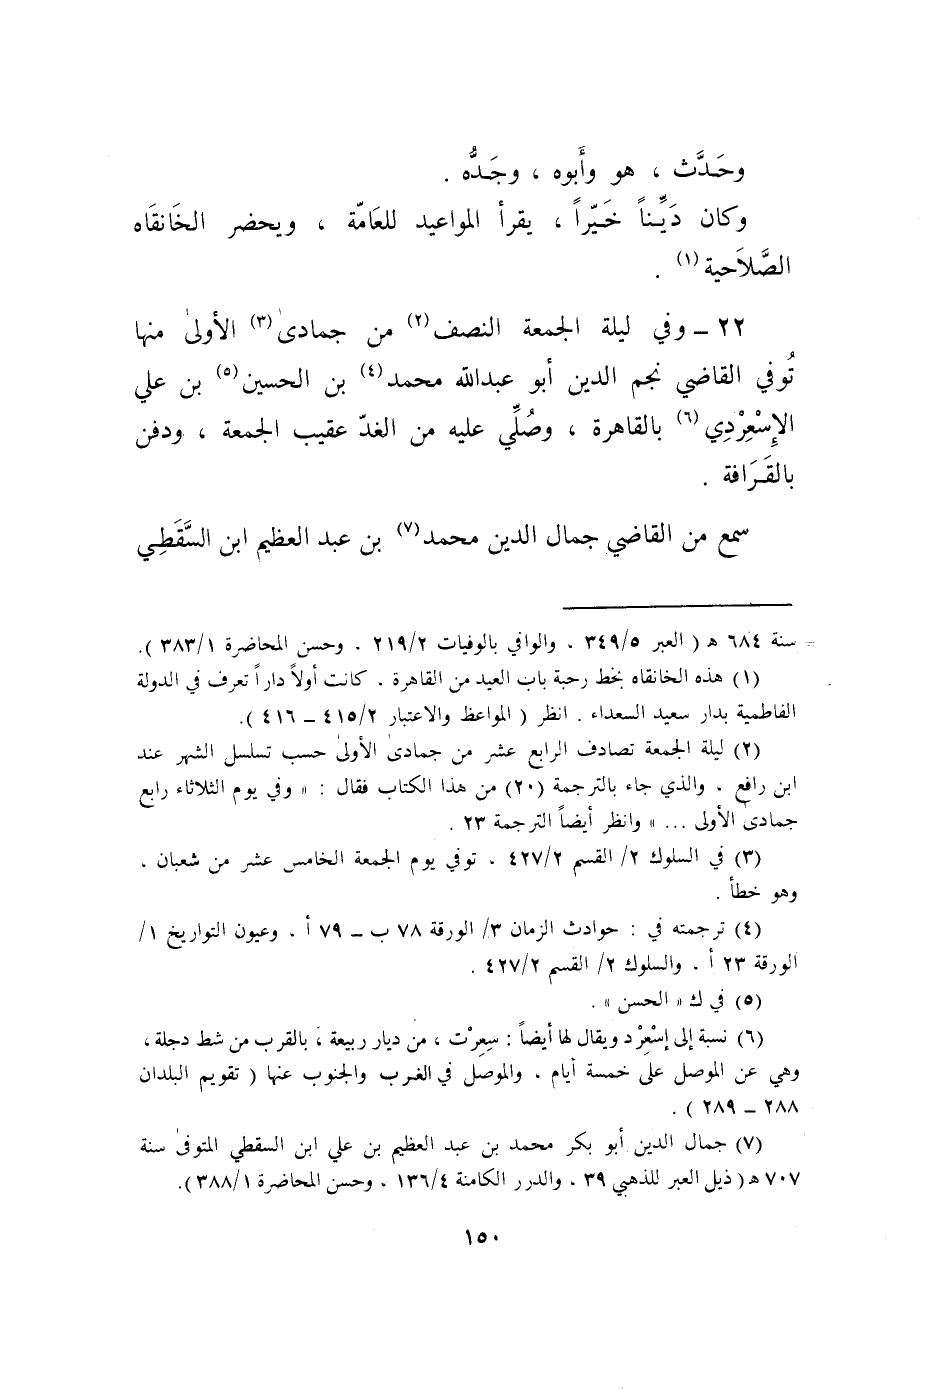 وحَدَّث ، هو وأَبوه ، وجَدُّه .
وكان دَيِّناً خَيّراً ، يقرأ المواعيد للعَامّة ، ويحضر الخَانقَاه
الصَّلاَحية (١) .
٢٢ ــ وفي ليلة الجمعة النصف (٢) من جمادىٰ (٣) الأولىٰ منها
تُوفي القاضي نجم الدين أبو عبدالله محمد (٤) بن الحسين (٥) بن علي
الإِسْعِرْدِي (٦) بالقاهرة ، وصُلِّي عليه من الغدّ عقيب الجمعة ، ودفن
بالقَرَافة .
سمع من القاضي جمال الدين محمد (٧) بن عبد العظيم ابن السَّقَطِي
= سنة ٦٨٤ هـ ( العبر ٣٤٩/٥ ، والوافي بالوفيات ٢١٩/٢ ، وحسن المحاضرة ٣٨٣/١ ).
(١) هذه الخانقاه بخط رحبة باب العيد من القاهرة ، كانت أولاً داراً تعرف في الدولة
الفاطمية بدار سعيد السعداء . انظر ( المواعظ والاعتبار ٤١٥/٢ ــ ٤١٦ ).
(٢) ليلة الجمعة تصادف الرابع عشر من جمادىٰ الأولىٰ حسب تسلسل الشهر عند
ابن رافع ، والذي جاء بالترجمة (٢٠) من هذا الكتاب فقال : « وفي يوم الثلاثاء رابع
جمادىٰ الأولى ... » وانظر أيضاً الترجمة ٢٣ .
(٣) في السلوك ٢/ القسم ٤٢٧/٢ ، توفي يوم الجمعة الخامس عشر من شعبان ،
وهو خطأ .
(٤) ترجمته في : حوادث الزمان ٣/ الورقة ٧٨ ب ــ ٧٩ أ ، وعيون التواريخ ١/
الورقة ٢٣ أ ، والسلوك ٢/ القسم ٤٢٧/٢ .
(٥) في ك « الحسن » .
(٦) نسبة إلى إسْعِرْد ويقال لها أيضاً : سِعِرْت ، من ديار ربيعة ، بالقرب من شط دجلة ،
وهي عن الموصل على خمسة أيام ، والموصل في الغرب والجنوب عنها ( تقويم البلدان
٢٨٨ ــ ٢٨٩ ) .
(٧) جمال الدين أبو بكر محمد بن عبد العظيم بن علي ابن السقطي المتوفىٰ سنة
٧٠٧ هـ ( ذيل العبر للذهبي ٣٩ ، والدرر الكامنة ١٣٦/٤ ، وحسن المحاضرة ٣٨٨/١ ).
١٥٠